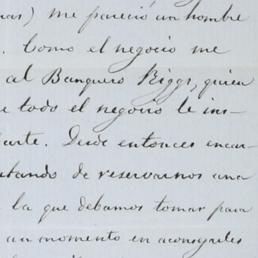 nas) me pareció un hombre
. Como el negocio me
al Banquero Biggs, quien
e todo el negocio le ins-
parte. Desde entonces encar-
atando de reservarnos una
la que debamos tomar para
un momento en aconsejarles